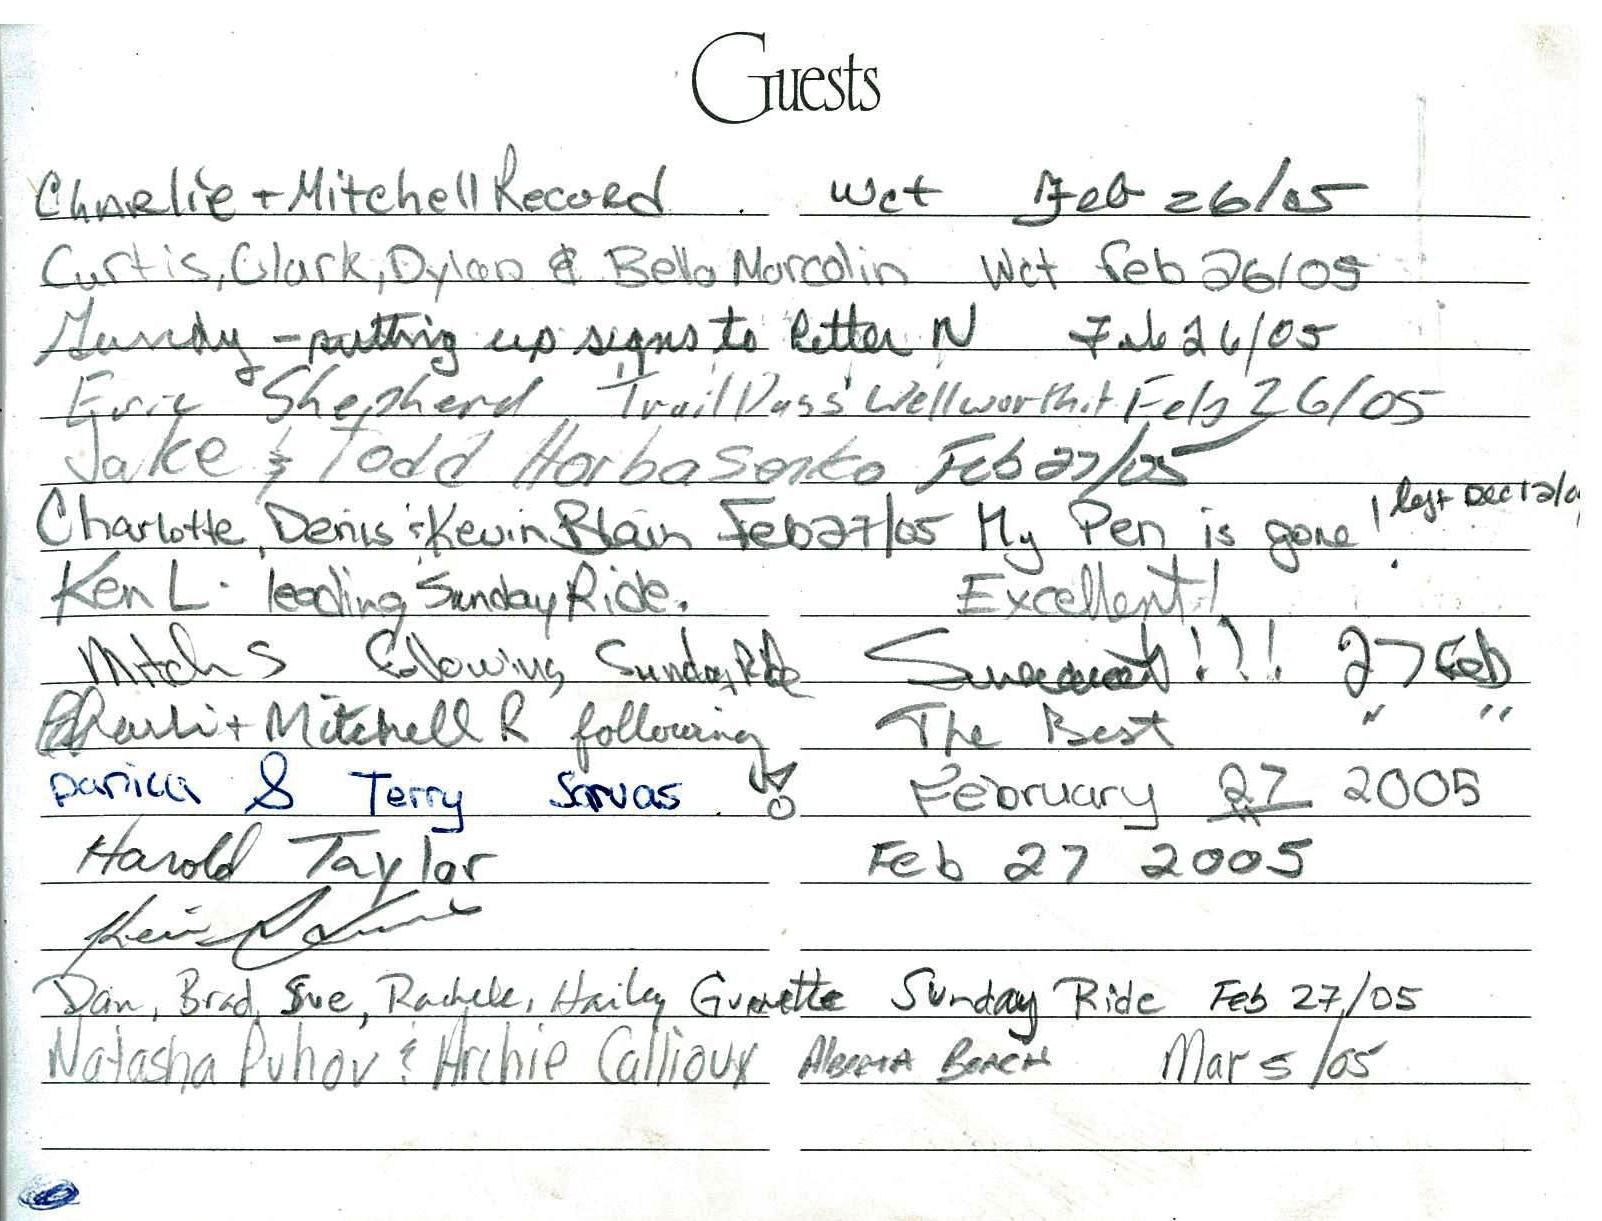 Guests
Charlie + Mitchell Record Wct Feb 26/05
Curtis, Clark, Dylan & Bella Marcolin Wct Feb 26/05
- putting up signs to letter N Feb 26/05
Eric Shepherd Trail Pass Well worth it Feb 26/05
Jake & Todd Horbasenko Feb 27/05
Charlotte, Denis & Kevin Blain Feb 27/05 My Pen is gone! I left Dec 12/0
Ken L. leading Sunday Ride. Excellent!
Mitch S following Sunday Ride !!! 27 Feb
Charli + Mitchell R following The Best " "
Danica & Terry Sarvas February 27 2005
Harold Taylor Feb 27 2005
Dan, Brad, Sue, Rachele, Hailey Guenette Sunday Ride Feb 27/05
Natasha Puhov & Archie Callioux Alberta Beach Mar 5/05